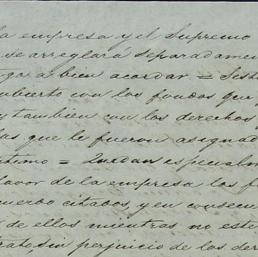 la empresa y el Supremo
se arreglará separadamen
ga a bien acordar =
cubierto con los fondos que
y tambien con los derechos
las que le fueron asignad
timo = Quedan especialm
favor de la empresa los f
cuerdo citados, y en consecue
de ellos mientras no este
trato, sin perjuicio de los der